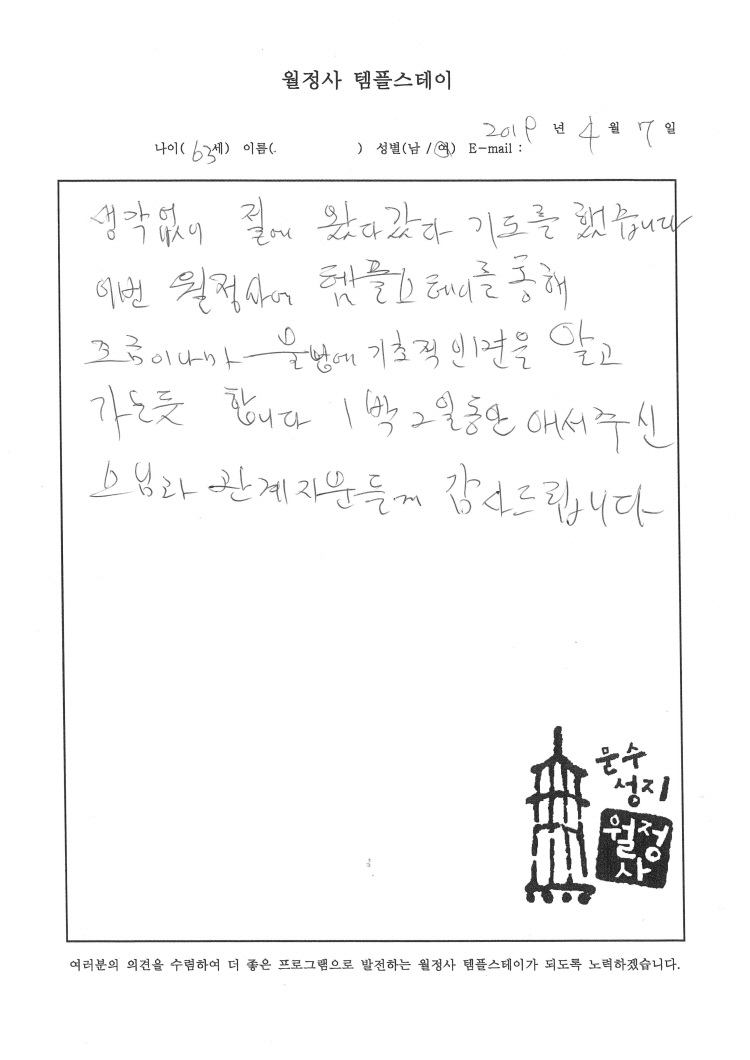 월정사 템플스테이
2019 년 4 월 7 일
나이( 63세) 이름(. ) 성별(남 / 여) E-mail :
생각없이 절에 왔다갔다 기도를 했씁니다
이번 월정사에 템플스테이를 통해
조금이나마 불법에 기초적 인견을 알고
가는듯 합니다 1박2일동안 애써주신
스님과 관계자분들게 감사드립니다
문수
성지
월정
사
여러분의 의견을 수렴하여 더 좋은 프로그램으로 발전하는 월정사 템플스테이가 되도록 노력하겠습니다.